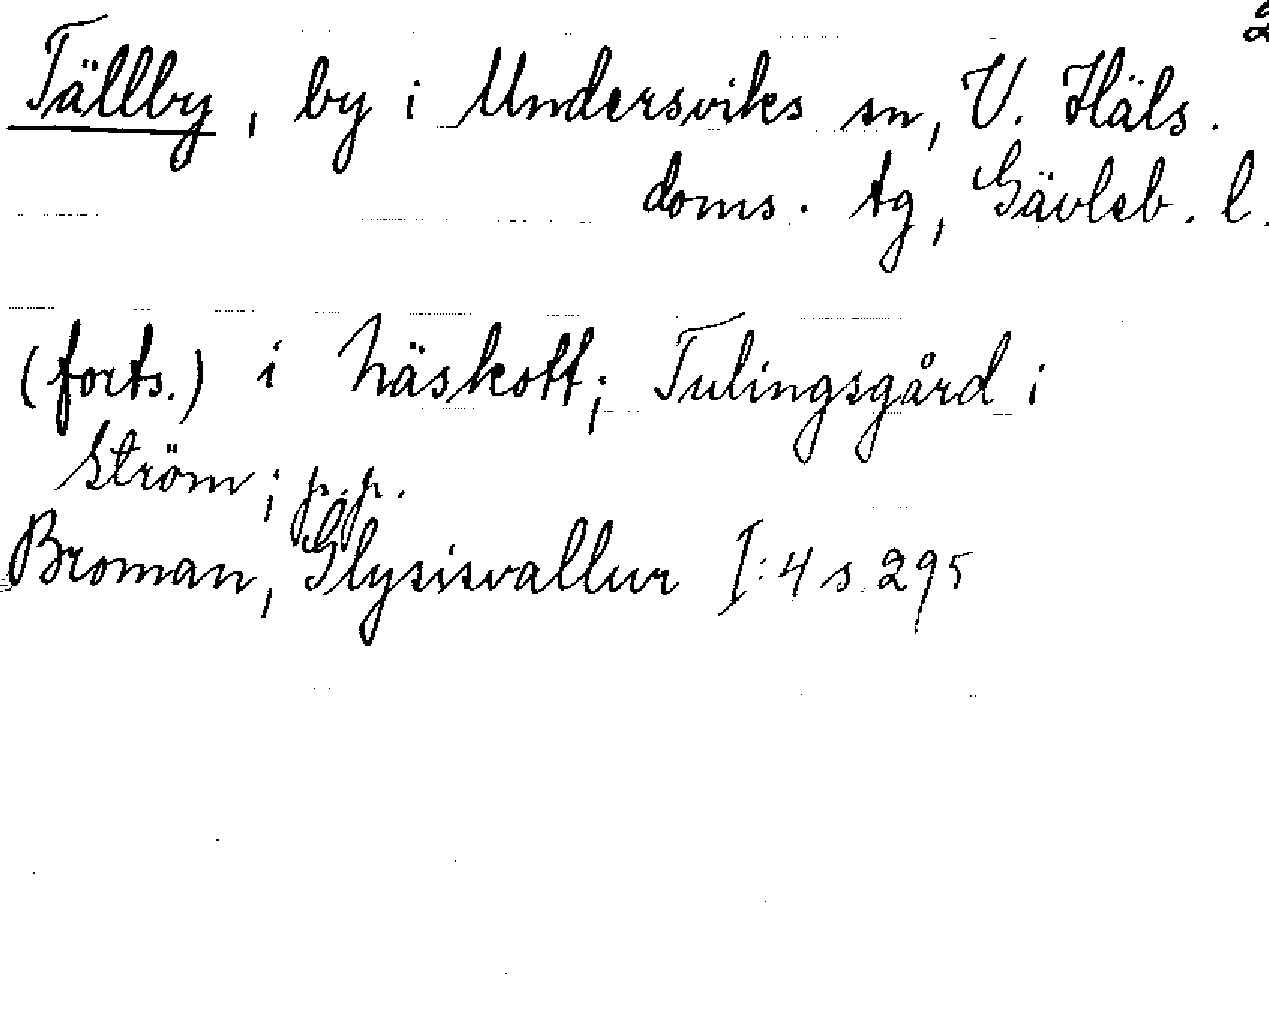 2
Tällby, by i Undersviks sn, V. Häls.
doms. tg, Gävleb. l.
(forts.) i Näskott; Tulingsgård i
Ström; p.p.
Broman, Glysisvallur I:4 s. 295